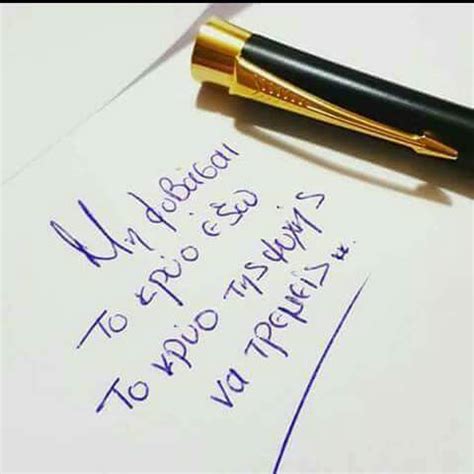 Μη φοβάσαι
Το κρύο έξω
Το κρύο της ψυχής
να τρέμεις..